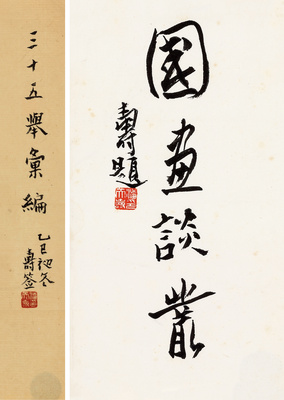 國畫談叢
壽題
三十五舉彙編
乙巳初冬
壽簽